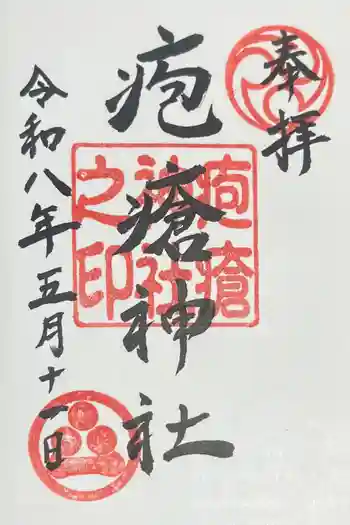 奉拝
疱瘡神社
疱瘡
神社
之印
令和八年五月十一日